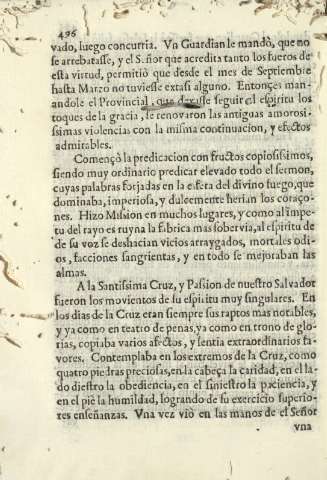 496
vado, luego concurria. Vn Guardian le mandò, que no
se arrebatasse, y el S.ñor que acredita tanto los fueros de
esta virtud, permitiò que desde el mes de Septiembre
hasta Marzo no tuviesse extasi alguno. Entonçes man-
andole el Provincial, que dexasse seguir el espiritu los
toques de la gracia, le renovaron las antiguas amoros-
ssimas violencias con la misma continuacion, y efectos
admirables.
Començò la predicacion con fructos copiosissimos,
siendo muy ordinario predicar elevado todo el sermon,
cuyas palabras forjadas en la esfera del divino fuego, que
dominaba, imperiosa, y dulcemente herian los coraço-
nes. Hizo Mission en muchos lugares, y como al impe-
tu del rayo es ruyna la fabrica mas sobervia, al espiritu de
de su voz se deshacian vicios arraygados, mortales odi-
os, facciones sangrientas, y en todo se mejoraban las
almas.
A la Santissima Cruz, y Passion de nuestro Salvador
fueron los movientos de su espiritu muy singulares. En
los dias de la Cruz eran siempre sus raptos mas notables,
y ya como en teatro de penas, ya como en trono de glo-
rias, copiaba varios afectos, y sentia extraordinarios fa-
vores. Contemplaba en los extremos de la Cruz, como
quatro piedras preciosas, en la cabeça la caridad, en el la-
do diestro la obediencia, en el siniestro la paciencia, y
en el piè la humildad, logrando de su exercicio superio-
res enseñanzas. Vna vez viò en las manos de el Señor
vna